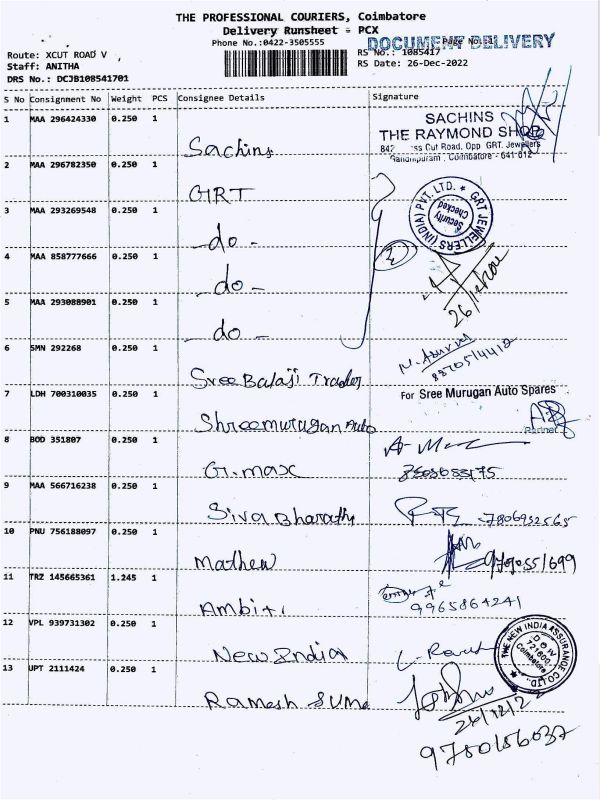 THE PROFESSIONAL COURIERS, Coimbatore
Delivery Runsheet - PCX
Phone No.:0422-3505555
DOCUMENT DELIVERY
Route: XCUT ROAD V ,
RS No.: 1085417
Staff: ANITHA
RS Date: 26-Dec-2022
DRS No.: DCJB108541701
S No Consignment No Weight PCS Consignee Details Signature
1 MAA 296424330 0.250 1
SACHINS
THE RAYMOND SHOP
Cut Road, Opp GRT. Jewellers
Gandhipuram, Coimbatore - 641 012
Sachins
2 MAA 296782350 0.250 1
GRT
GRT JEWELLERS (INDIA) PVT. LTD. *
Security
Checked
3 MAA 293269548 0.250 1
-do-
3
4 MAA 858777666 0.250 1
-do-
5 MAA 293088901 0.250 1
-do-
6 SMN 292268 0.250 1
Sree Balaji Trader
7 LDH 700310035 0.250 1
For Sree Murugan Auto Spares
Partner
Shreemurugan Auto
8 BOD 351807 0.250 1
G.max
9 MAA 566716238 0.250 1
Siva Bharathy
10 PNU 756188097 0.250 1
Mathew
11 TRZ 145665361 1.245 1
9965864241
12 VPL 939731302 0.250 1
New India
THE NEW INDIA ASSURANCE CO LTD
721600
Coimbatore
13 UPT 2111424 0.250 1
Ramesh